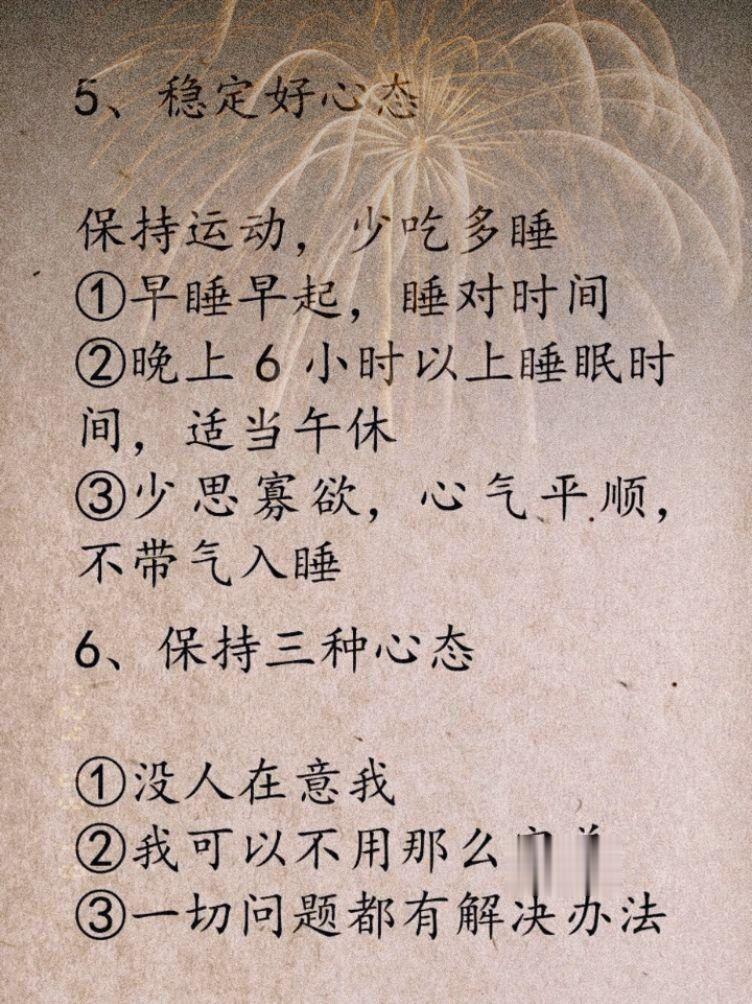 5、稳定好心态
保持运动，少吃多睡
①早睡早起，睡对时间
②晚上6小时以上睡眠时
间，适当午休
③少思寡欲，心气平顺，
不带气入睡
6、保持三种心态
①没人在意我
②我可以不用那么
③一切问题都有解决办法